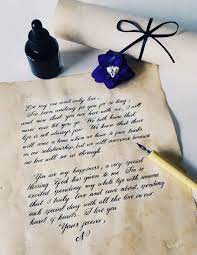 For my one and only love,
I've been waiting for you for so long,
and now that you are here with me, I will
never ever let you go. We both know that
life is not always fair. We know that there
will come a time when we have to face trials
in our relationship, but we will overcome because
our love will see us through.
You are my happiness, a very special
blessing God has given to me. I'm so
excited spending my whole life with someone
that I truly love and care about, spending
each special day with all the love in our
heart of hearts. I love you.
Yours forever,